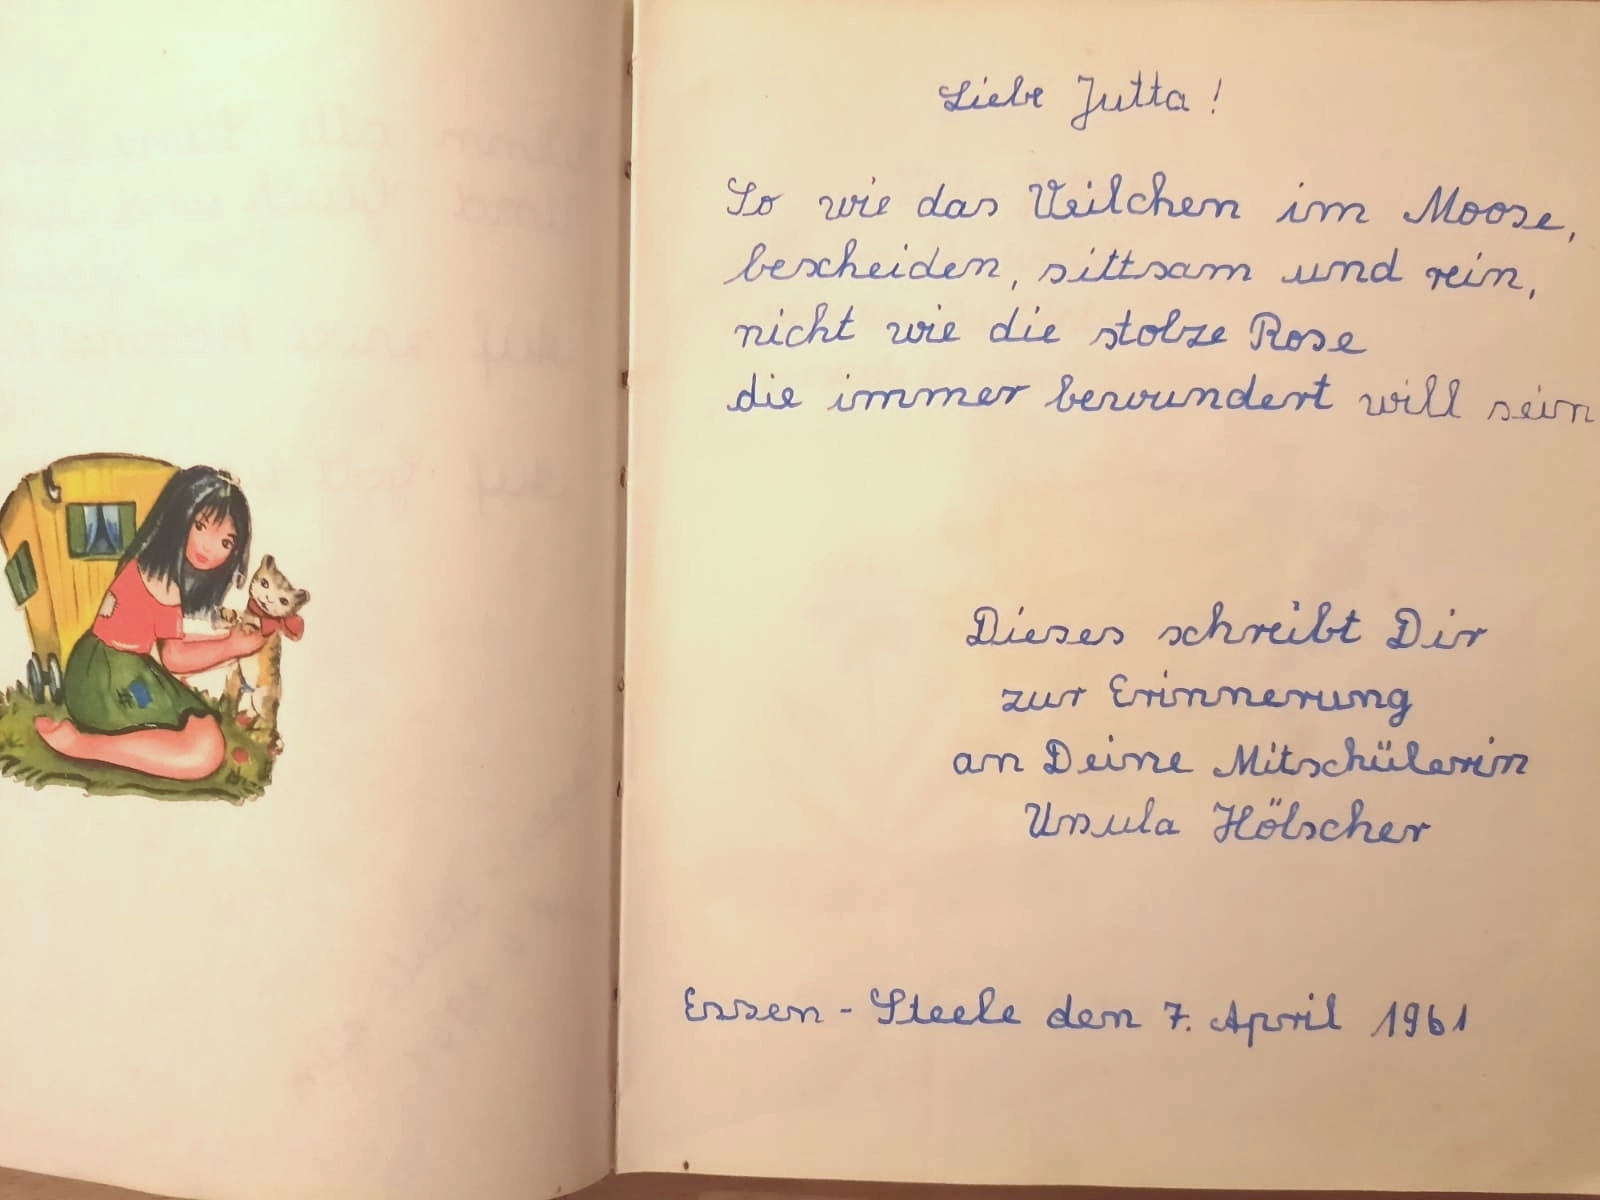 Liebe Jutta!
So wie das Veilchen im Moose,
bescheiden, sittsam und rein,
nicht wie die stolze Rose
die immer bewundert will sein
Dieses schreibt Dir
zur Erinnerung
an Deine Mitschülerin
Ursula Hölscher
Essen-Steele den 7. April 1961